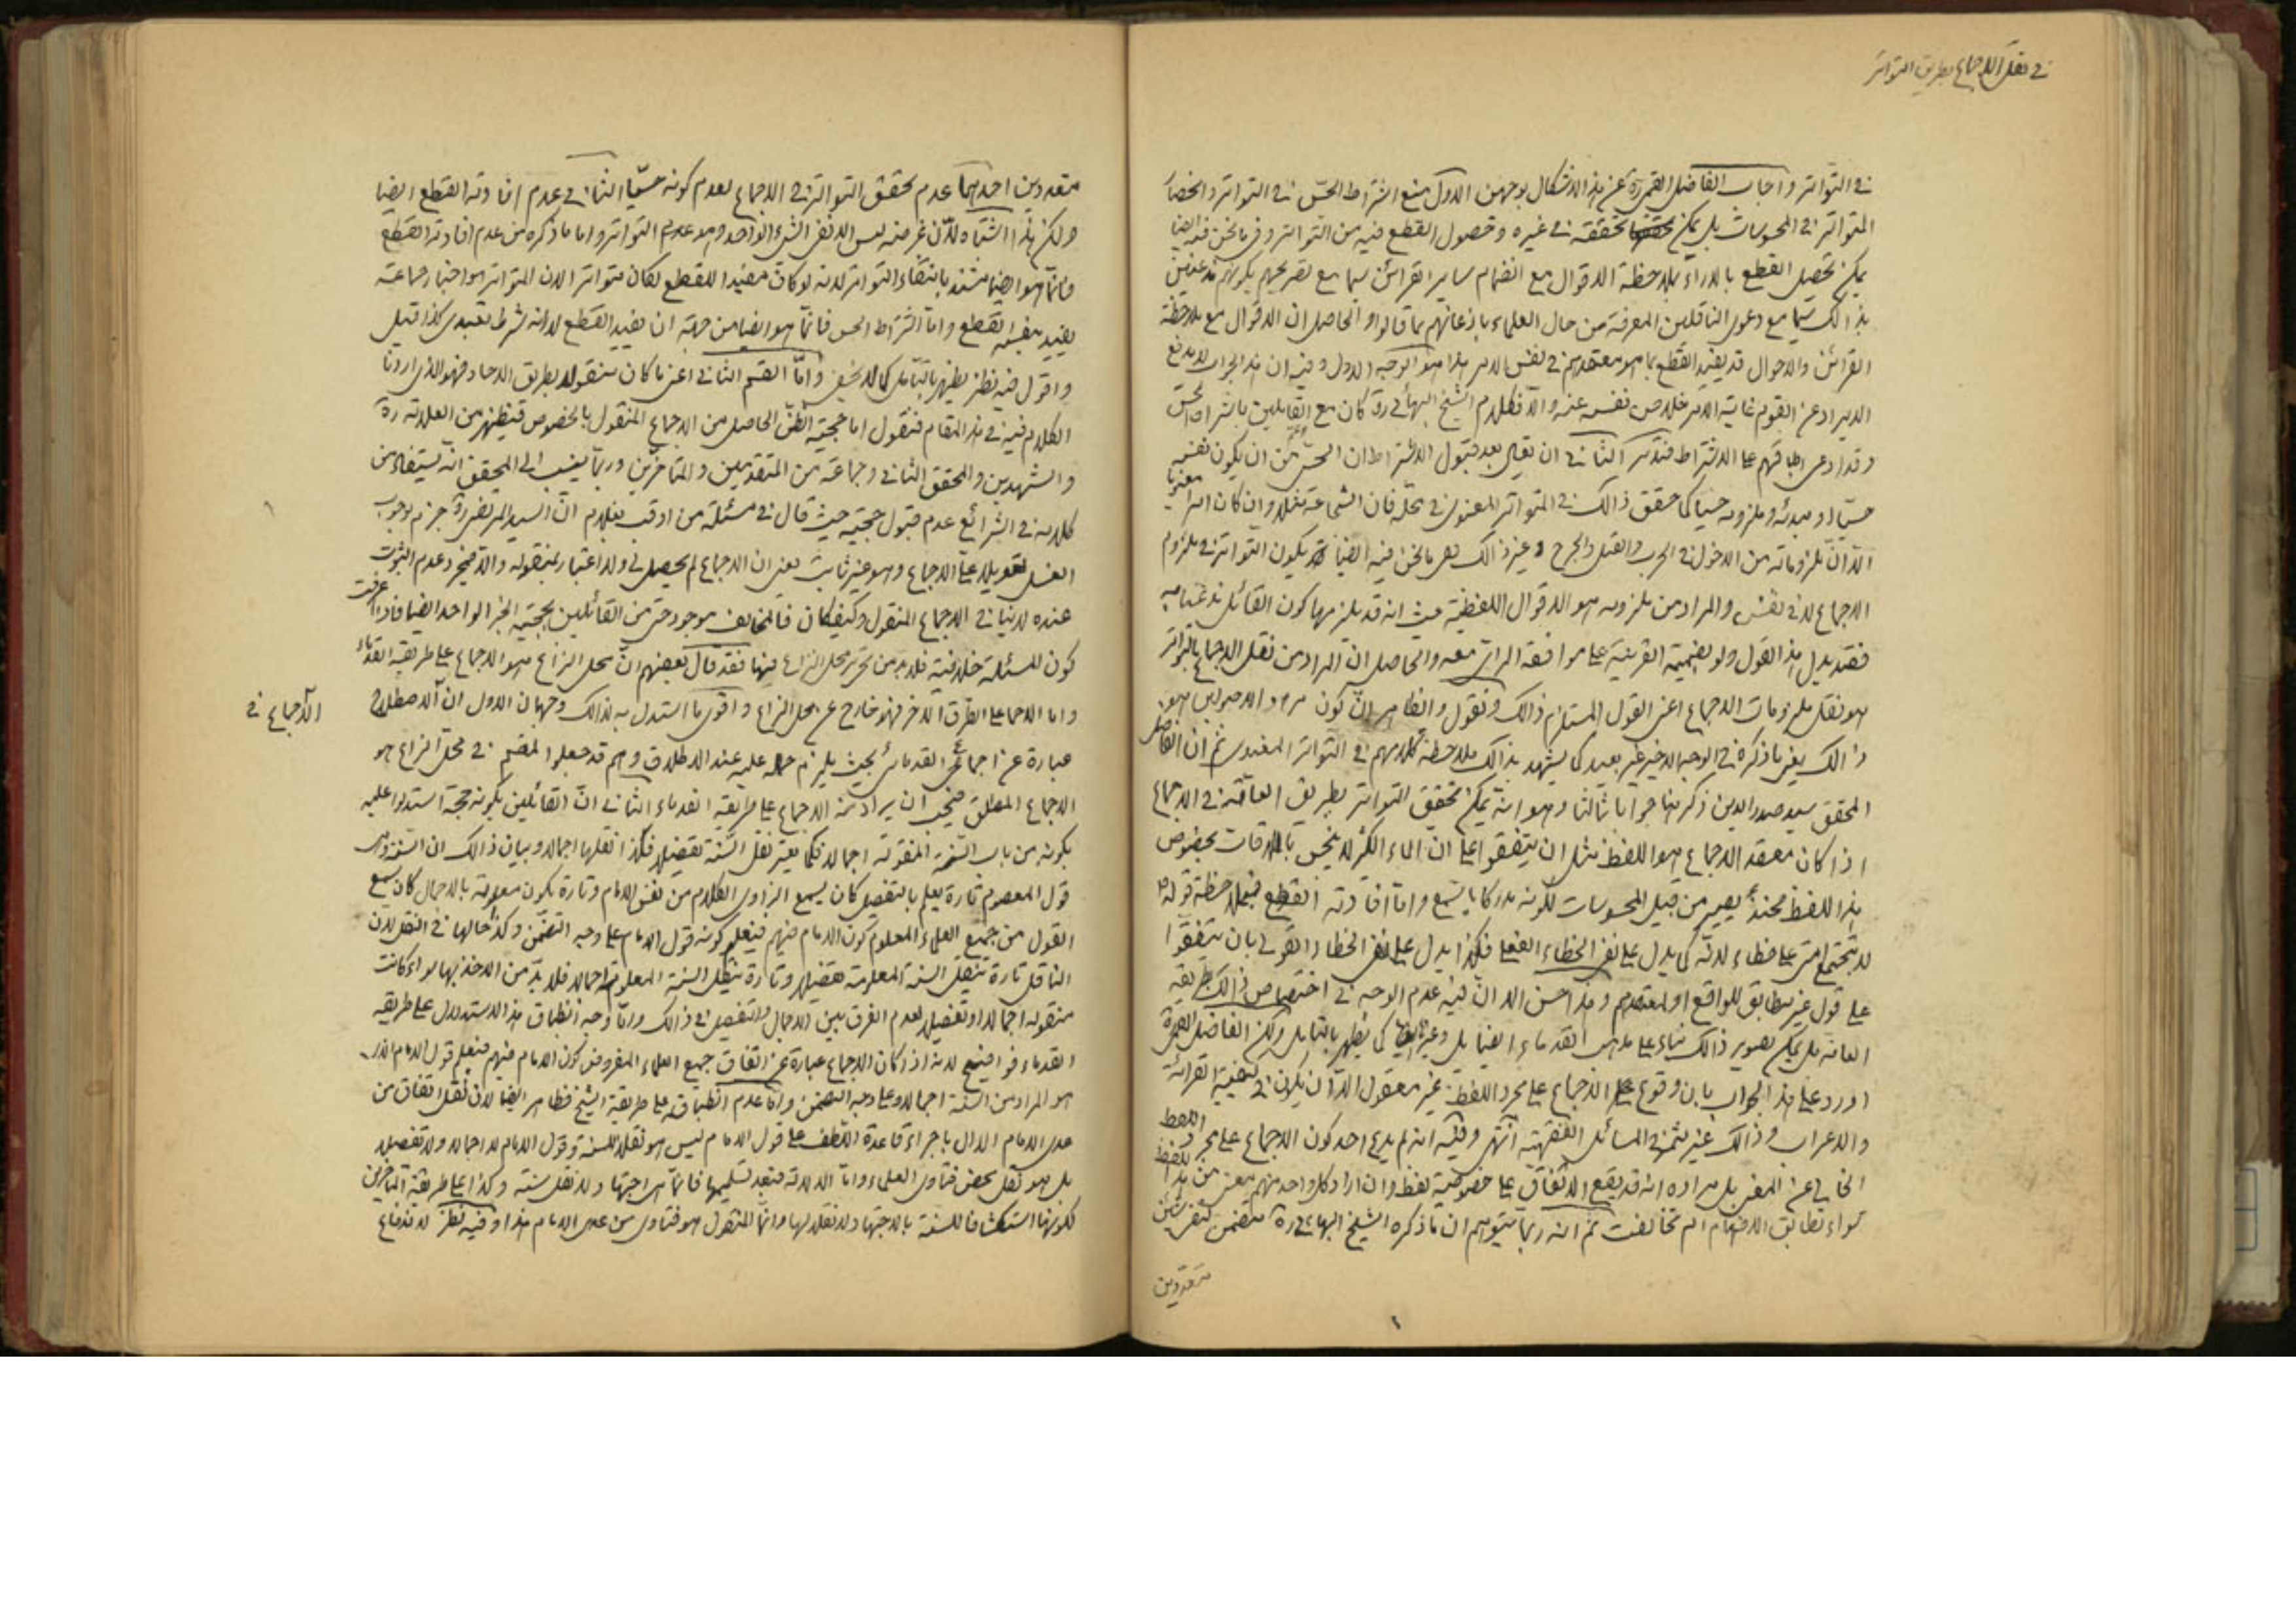 في نقل الاجماع بطريق التواتر
في التواتر واجاب الفاضل القمي ره عن هذا الاشكال بوجهين الاول منع اشتراط الحس في التواتر وانحصار
المتواتر في المحسوسات بل يمكن تحققه في غيره وحصول القطع فيه من التواتر وفي ما نحن فيه ايضا
يمكن تحصيل القطع بالاراء بملاحظة الاقوال مع انضمام ساير القرائن سيما مع تصريحهم بكونهم مذعنين
بذالك سيما مع دعوى الناقلين المعرفة من حال العلماء باذعانهم بما قالوا والحاصل ان الاقوال مع ملاحظة
القرائن والاحوال قد يفيد القطع بما هو معتقدهم في نفس الامر هذا هو الوجه الاول وفيه ان هذا الجواب لا يدفع
الايراد عن القوم غاية الامر خلاص نفسه عنه والا فكلام الشيخ البهائي ره كان مع القايلين باشتراط الحس
وقد ادعى اطباقهم على الاشتراط فتدبر الثاني ان يقال بعد قبول الاشتراط ان الحس اعم من ان يكون نفسه
حسيا او مبدئه وملزومه حسيا كما حقق ذالك في المتواتر المعنوي في محله فان الشجاعة مثلا وان كان امرا معنويا
الا ان ملزوماته من الدخول في الحرب والقتل والجرح وغير ذالك حس ما نحن فيه ايضا يكون التواتر في ملزوم
الاجماع لا في نفسه والمراد من ملزومه هو الاقوال اللفظية حيث انه قد يلزمها كون القائل مذعنا به
فقد يدل هذا القول ولو بضميمة القرينة على موافقة الرأي معه والحاصل ان المراد من نقل الاجماع بالتواتر
هو نقل ملزومات الاجماع اعنى القول المستلزم ذالك ونقول والظاهر ان كون مراد الاصوليين هو
ذالك يعني ما ذكره في الوجه الاخير غير بعيد كما يشهد بذالك ملاحظة كلامهم في التواتر المعنوي ثم ان الفاضل
المحقق سيد صدر الدين ذكر هنا جوابا ثالثا وهو انه يمكن تحقق التواتر بطريق العامة في الاجماع
اذا كان معقد الاجماع هو اللفظ مثل ان يتفقوا على ان الماء الكثير لا ينجس بالملاقات بخصوص
هذا اللفظ فحينئذ يصير من قبيل المحسوسات لكونه مدركا بالسمع واما افادته القطع فبملاحظة قوله ص
لا تجتمع امتي على خطاء لانه كما يدل على نفي الخطاء الفعلي فكذا يدل على نفي الخطاء القولي بان يتفقوا
على قول غير مطابق للواقع او لمعتقدهم وهذا حسن الا ان فيه عدم الوجه في اختصاص ذالك بطريقه
العامة بل يمكن تصوير ذالك بناء على مذهب القدماء ايضا بل وغيره ايضا كما يظهر بالتامل ولكن الفاضل القمي ره
اورد على هذا الجواب بان وقوع الاجماع على مجرد اللفظ غير معقول الا ان يكون في كيفية القرائة
والاعراب وذالك غير مثمر في المسائل الفقهية انتهى وفيه انه لم يدع احد كون الاجماع على مجرد اللفظ
الخالي عن المعنى بل مراده انه قد يقع الاتفاق على خصوصية لفظ وان اراد كل واحد منهم معنى من هذا اللفظ
سواء تطابق الافهام ام تخالفت ثم انه ربما يتوهم ان ما ذكره الشيخ البهائي ره يتضمن لنفي شيئين
متعددين
متعددين احدهما عدم تحقق التواتر في الاجماع لعدم كونه حسيا الثاني عدم افادته القطع ايضا
ولكن هذا اشتباه لان غرضه ليس الا نفي الشيء الواحد وهو عدم التواتر واما ما ذكره من عدم افادته القطع
فانما هو ايضا مستند بانتفاء التواتر لانه لو كان مفيدا للقطع لكان متواترا لان المتواتر هو اخبار جماعة
يفيد بنفسه القطع واما اشتراط الحس فانما هو ايضا من جهة ان يفيد القطع لا انه شرط تعبدي كذا قيل
واقول فيه نظر يظهر بالتامل كما لا يخفى واما القسم الثاني اعنى ما كان منقولا بطريق الاحاد فهو الذي اردنا
الكلام فيه في هذا المقام فنقول اما حجية الظن الحاصل من الاجماع المنقول بالخصوص فيظهر من العلامة ره
والشهيدين والمحقق الثاني وجماعة من المتقدمين والمتاخرين وربما ينسب الى المحقق انه يستفاد من
كلامه في الشرائع عدم قبول حجيته حيث قال في مسئلة من اوقب بغلام ان السيد المرتضى ره جزم بوجوب
الغسل تعويلا على الاجماع وهو غير ثابت يعنى ان الاجماع لم يحصل لي ولا اعتبار بمنقوله والا فمجرد عدم الثبوت
عنده لا ينافي الاجماع المنقول وكيف كان فالمخالف موجود حتى من القائلين بحجية الخبر الواحد ايضا فاذا عرفت
كون المسئلة خلافية فلا بد من تحرير محل النزاع فيها فقد قال بعضهم ان محل النزاع هو الاجماع على طريقة القدماء
واما الاجماع على الطرق الاخر فهو خارج عن محل النزاع واقوى ما استدل به لذالك وجهان الاول ان الاصطلاح
الاجماع في
عبارة عن اجماع القدمائي بحيث يلزم حمله عليه عند الاطلاق وهم قد جعلوا المقسم في محل النزاع هو
الاجماع المطلق فيجب ان يراد منه الاجماع على طريقة القدماء الثاني ان القائلين بكونه حجة استدلوا عليه
بكونه من باب السنة المنقولة اجمالا فكما يعتبر نقل السنة تفصيلا فكذا نقلها اجمالا وبيان ذالك ان السنة وهي
قول المعصوم تارة يعلم بالتفصيل كان يسمع الراوي الكلام من نفس الامام وتارة يكون معلومة بالاجمال كان يسمع
القول من جميع العلماء المعلوم كون الامام فيهم فيعلم كونه قول الامام على وجه التضمن وكذا حالها في النقل لان
الناقل تارة ينقل السنة المعلومة تفصيلا وتارة ينقل السنة المعلومة اجمالا فلا بد من الاخذ بها سواء كانت
منقولة اجمالا او تفصيلا لعدم الفرق بين الاجمال والتفصيل في ذالك واما وجه انطباق هذا الاستدلال على طريقه
القدماء فواضح لانه اذا كان الاجماع عبارة عن اتفاق جميع العلماء المفروض كون الامام فيهم فيعلم قول الامام الذي
هو المراد من السنة اجمالا وعلى وجه التضمن واما عدم انطباقه على طريقة الشيخ فظاهر ايضا لان نقل اتفاق من
عدى الامام الدال باجراء قاعدة اللطف على قول الامام ليس هو نقلا للسنة وقول الامام لا اجمالا ولا تفصيلا
بل هو نقل محض فتاوى العلماء واما الدلالة فبعد تسليمها فانما هي اجتهاد لا نقل سنة وكذا على طريقة المتاخرين
لكونها استكشافا للسنة بالاجتهاد لا نقلا لها وانما المنقول هو فتاوى من عدى الامام هذا وفيه نظر لاندفاع